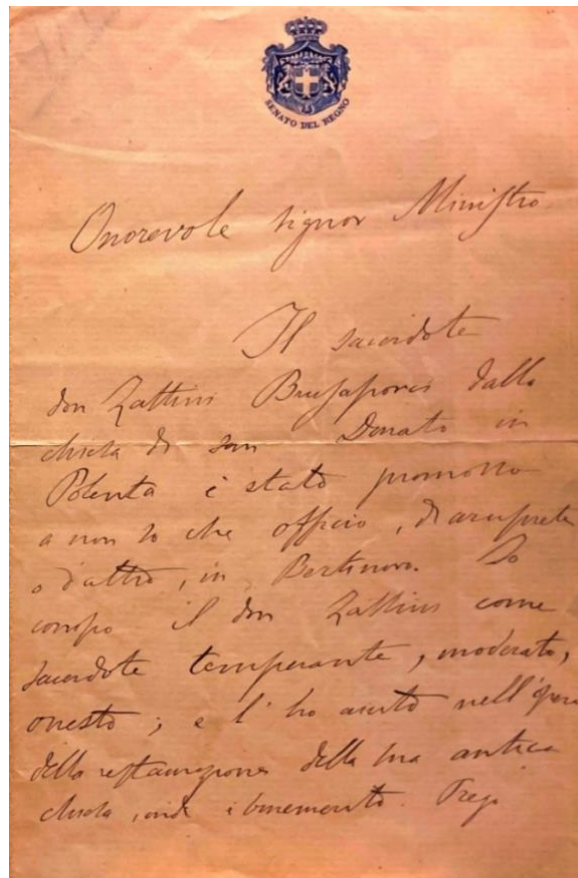 SENATO DEL REGNO
Onorevole signor Ministro
Il sacerdote
don Zattini dalla
chiesa di san Donato in
Polenta è stato promosso
a non so che officio, d'arciprete
o d'altro, in Bertinoro. Io
conosco il don Zattini come
sacerdote temperante, moderato,
onesto; e l'ho aiuto nell'opera
della restaurazione della sua antica
chiesa, ond'è benemerito. Prego